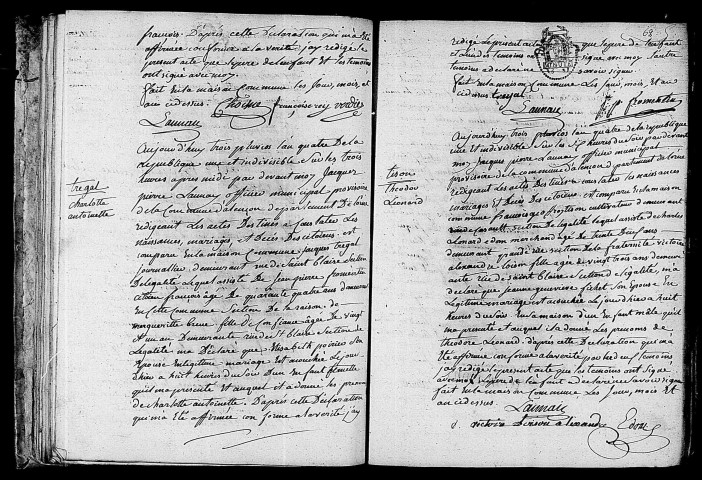 françois. D'après cette Declaration qui m'a été
affirmée conforme a la verité, j'ay redigé le
present acte que le pere de l'enfant et les temoins
ont signé avec moy.
fait en la maison Commune les Jour, mois, et
an cy dessus.
françois rey
Launay
tregal
charlotte
antoinette
Aujourdhuy trois pluviose l'an quatre De la
Republique une et indivisible sur les trois
heures après midi par devant moy Jacques
pierre Launay officier municipal provisoire
de la Commune d'alençon departement De l'orne
redigeant les actes Destinés a Constater les
naissances, mariages, et Décès des citoiens, est
comparu en la maison Commune Jacques tregal
journallier, demeurant rue de Saint Blaise section
De legalité lequel assisté de Jean pierre fromentin
citoien françois agé de quarante quatre ans demeurant
en cette Commune Section De la
marguerittte fille de Confiance agée de vingt
et un an Demeurante rue de St Blaise Section de
Legalité m'a Déclaré que Elisabeth son
Epouse en legitime mariage est accouchée le jour
d'hier a huit heures du soir D'un Enfant femelle
qu'il m'a presenté et auquel il a donné les prenoms
de charlotte antoinette. D'après cette Déclaration
qui m'a Eté affirmée conforme a la verité, j'ay
68
redigé le present acte que le pere de l'enfant
et un des temoins ont signé avec moy l'autre
temoins a declaré ne savoir signer.
fait en la maison Commune les Jour, mois, et an
cy dessus
tregal
Launay
fromentin
tison
Theodor
Leonard
Aujourdhuy trois pluviose l'an quatre de la republique
une et indivisible sur les heures du soir par devant
moy Jacques pierre Launay officier municipal
provisoire de la commune d'alençon departement de l'orne
redigeant les actes Destinés a constater les naissances
mariages et Décès des citoiens, est comparu en la maison
commune françois tison cultivateur demeurant
section de legalité lequel assisté de charles
Leonard edom marchand agé de trente Deux ans
demeurant grande rue section de la fraternité et victoire
alexandre tison fille agée de vingt trois ans demeu-
rante rue de Saint Blaise section de legalité, m'a
declaré que jeanne genevieve son Epouse en
Legitime mariage est accouchée le jour d'hier a huit
heures du soir en sa maison d'un Enfant mâle qu'il
m'a presenté et auquel il a donné les prenoms de
theodore Leonard. d'après cette Declaration qui m'a
été affirmée conforme a la verité par les deux temoins
j'ay redigé le present acte que les temoins ont signé
avec moy le pere de l'enfant a declaré ne savoir signer
fait en la maison Commune les Jour, mois et
an cy dessus.
Launay
victoire alexandre
Edom